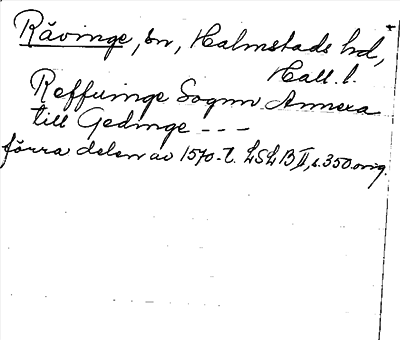 Rävinge, sn, Halmstads hd,
Hall. l.
Reffuinge Sognn Annexa
till Gedinge - - -
förra delen av 1570-t. LSLB II, s. 350 orig.